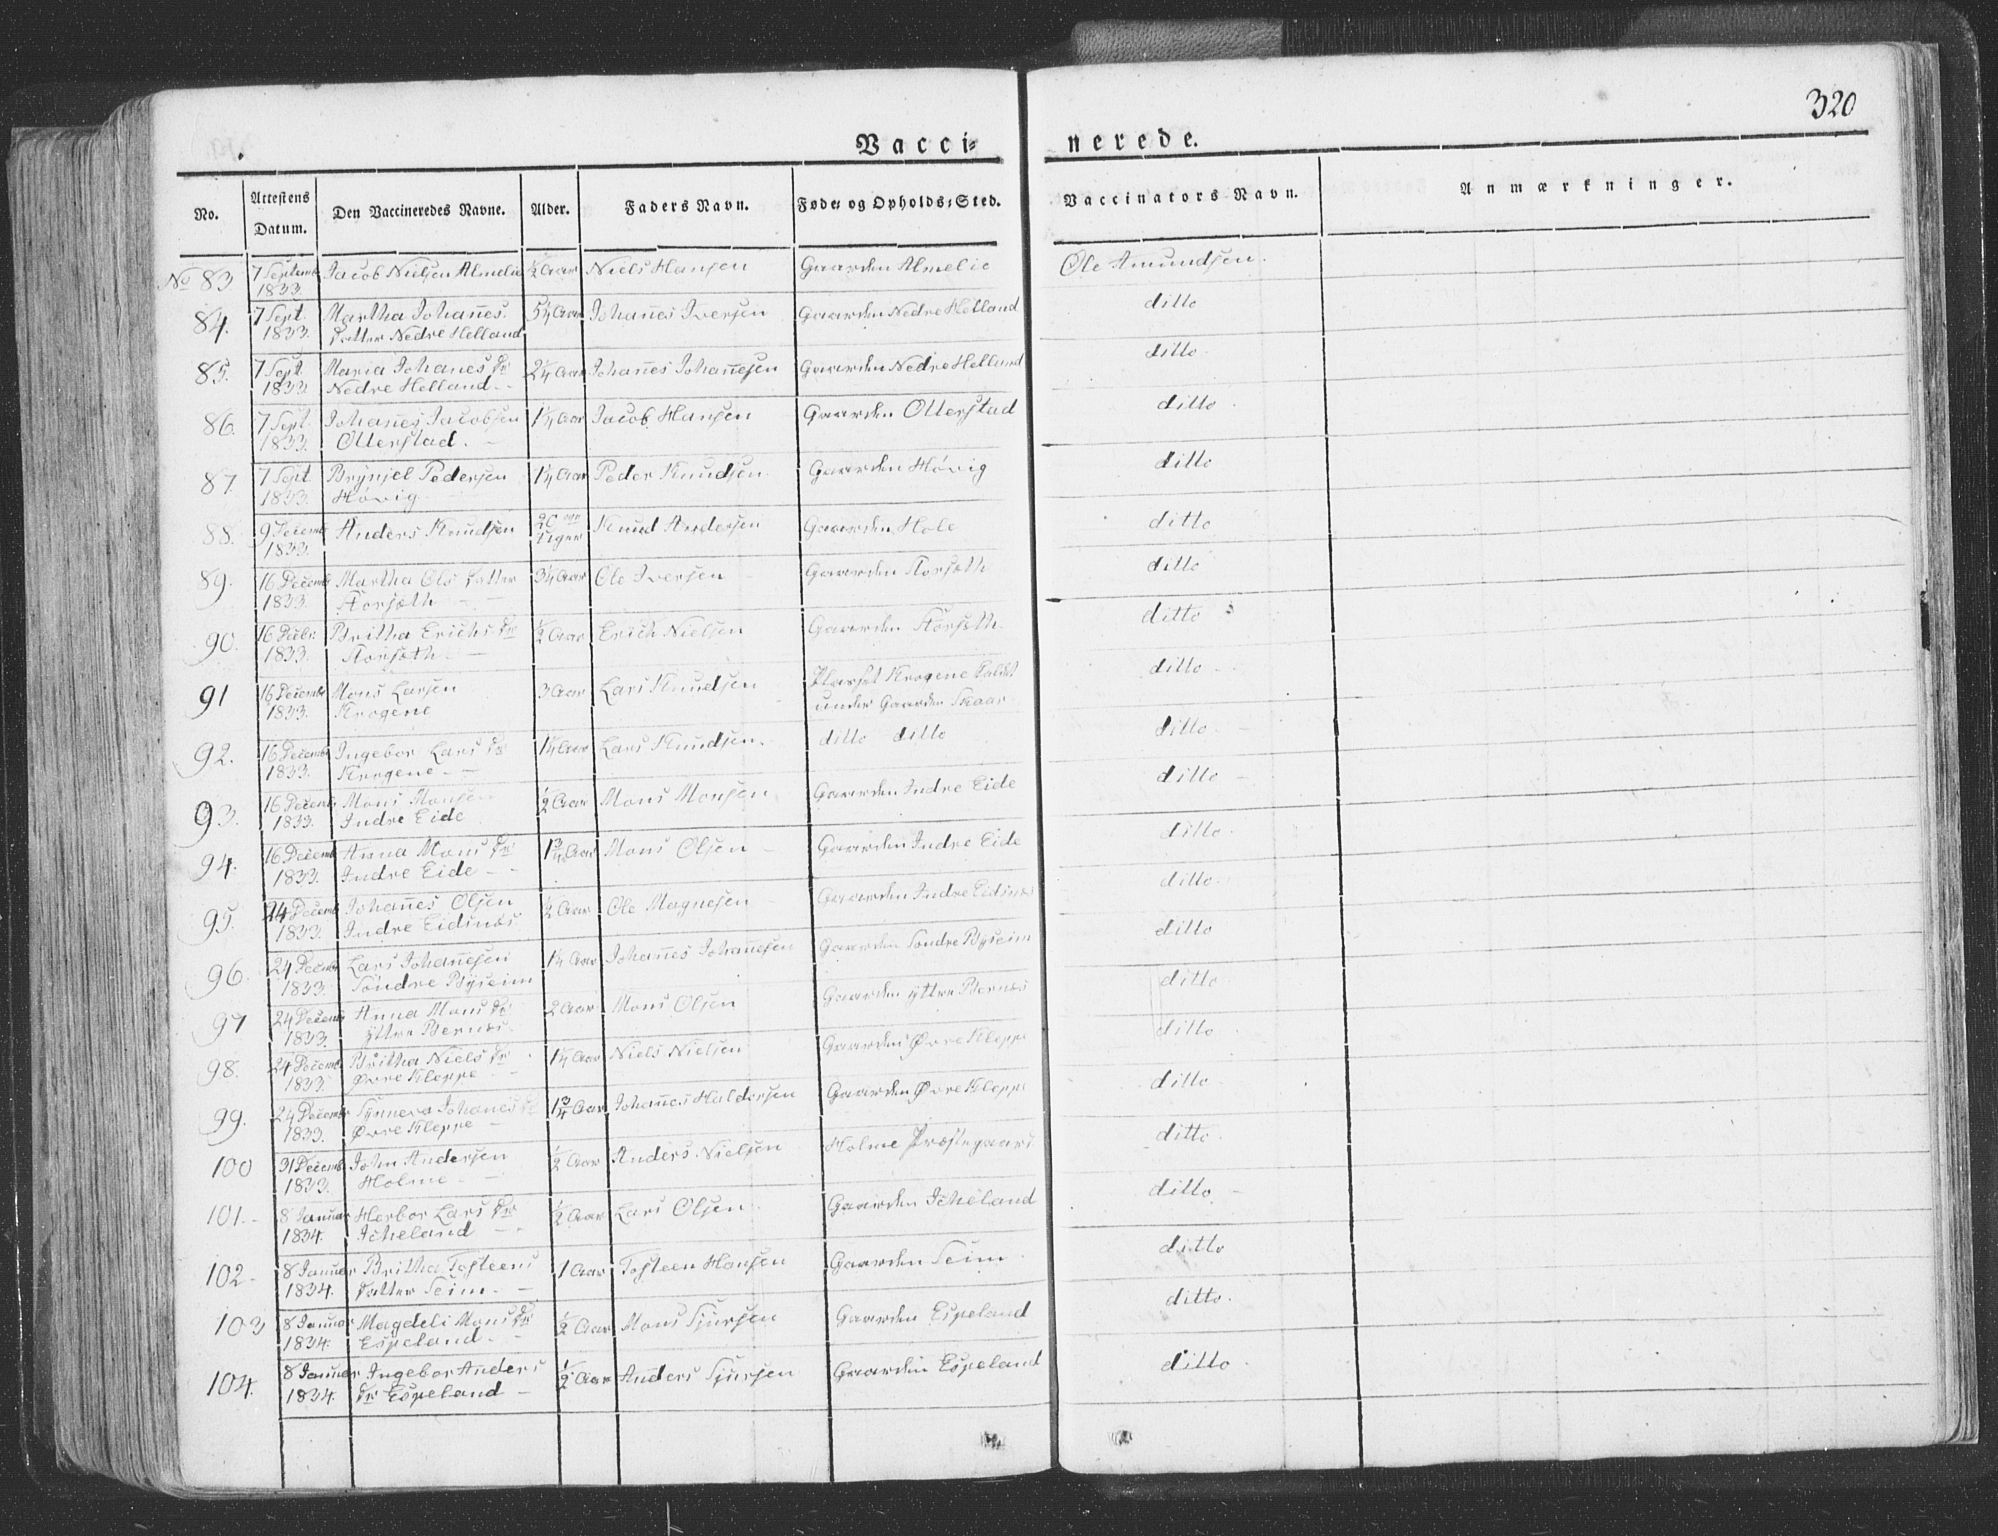 320
Vacci- nerede.
No. Attestens Datum. Den Vaccineredes Navne. Alder. Faders Navn. Føde- og Opholds-Sted. Vaccinators Navn. Anmærkninger.
No 83 7 Septemb Jacob Nielsen Almelie ½ Aar Niels Hansen Gaarden Almelie Ole Amundsen.
1833.
84. 7 Sept. Martha Johañes. 5¼ Aar Johañes Iversen Gaarden Nedre Helland ditto
1833. Datter Nedre Helland
85. 7 Sept. Maria Johanes Dr 2¼ Aar Johañes Johañesen Gaarden Nedre Helland ditto
1833. Nedre Helland
86. 7 Sept. Johañes Jacobsen 1¼ Aar Jacob Hansen Gaarden Otterstad ditto
1833. Otterstad.
87. 7 Sept Brynjel Pedersen 1¼ Aar Peder Knudsen Gaarden Hövig ditto
1833. Hövig
88. 9 Decemb Anders Knudsen 20 Uger Knud Andersen Gaarden Hole ditto
1833.
89. 16 Decemb Martha Ols Datter 3¼ Aar Ole Iversen Gaarden ditto
1833.
90. 16 Decbr. Britha Erichs Dr ½ Aar Erich Nielsen Gaarden ditto
1833.
91 16 Decemb Mons Larsen 3 Aar Lars Knudsen Pladset Krogene kaldet ditto
1833. Krogene under Gaarden Skaar
92. 16 Decemb Ingebor Lars Dr 1¼ Aar Lars Knudsen. ditto ditto ditto
1833. Krogene
93. 16 Decemb Mons Monsen ½ Aar Mons Monsen Gaarden Indre Eide ditto
1833. Indre Eide
94. 16 Decemb Anna Mons Dr 1¾ Aar Mons Olsen Gaarden Indre Eide ditto
1833. Indre Eide
95. 24 Decemb Johañes Olsen ½ Aar Ole Magnesen Gaarden Indre Eidsnæs ditto
1833. Indre Eidsnæs
96. 24 Decemb Lars Johañesen 1¼ Aar Johañes Johañesen Gaarden Söndre Byseim ditto
1833. Söndre Byseim
97 24 Decemb Anna Mons Dr 2 Aar Mons Olsen Gaarden yttre Bernæs ditto
1833. yttre Bernæs
98. 24 Decemb Britha Niels Dr 1¼ Aar Niels Nielsen Gaarden Øvre Kleppe ditto
1833. Øvre Kleppe
99. 24 Decemb Synneva Johanes Dr 1¾ Aar Johañes Haldorsen Gaarden Øvre Kleppe ditto
1833. Øvre Kleppe
100 31 Decemb John Andersen ½ Aar Anders Nielsen Holme Præstegaard ditto
1833. Holme
101. 8 Januar Herbor Lars Dr ½ Aar Lars Olsen Gaarden Icheland ditto
1834. Icheland
102 8 Januar Britha Tosteens 1 Aar Tosteen Hansen Gaarden Seim ditto
1834. Datter Seim.
103 8 Januar Magdeli Mons Dr ½ Aar Mons Sjursen Gaarden Espeland ditto.
1834. Espeland
104. 8 Januar Ingebor Anders ½ Aar Anders Sjursen Gaarden Espeland ditto
1834. Dr Espeland